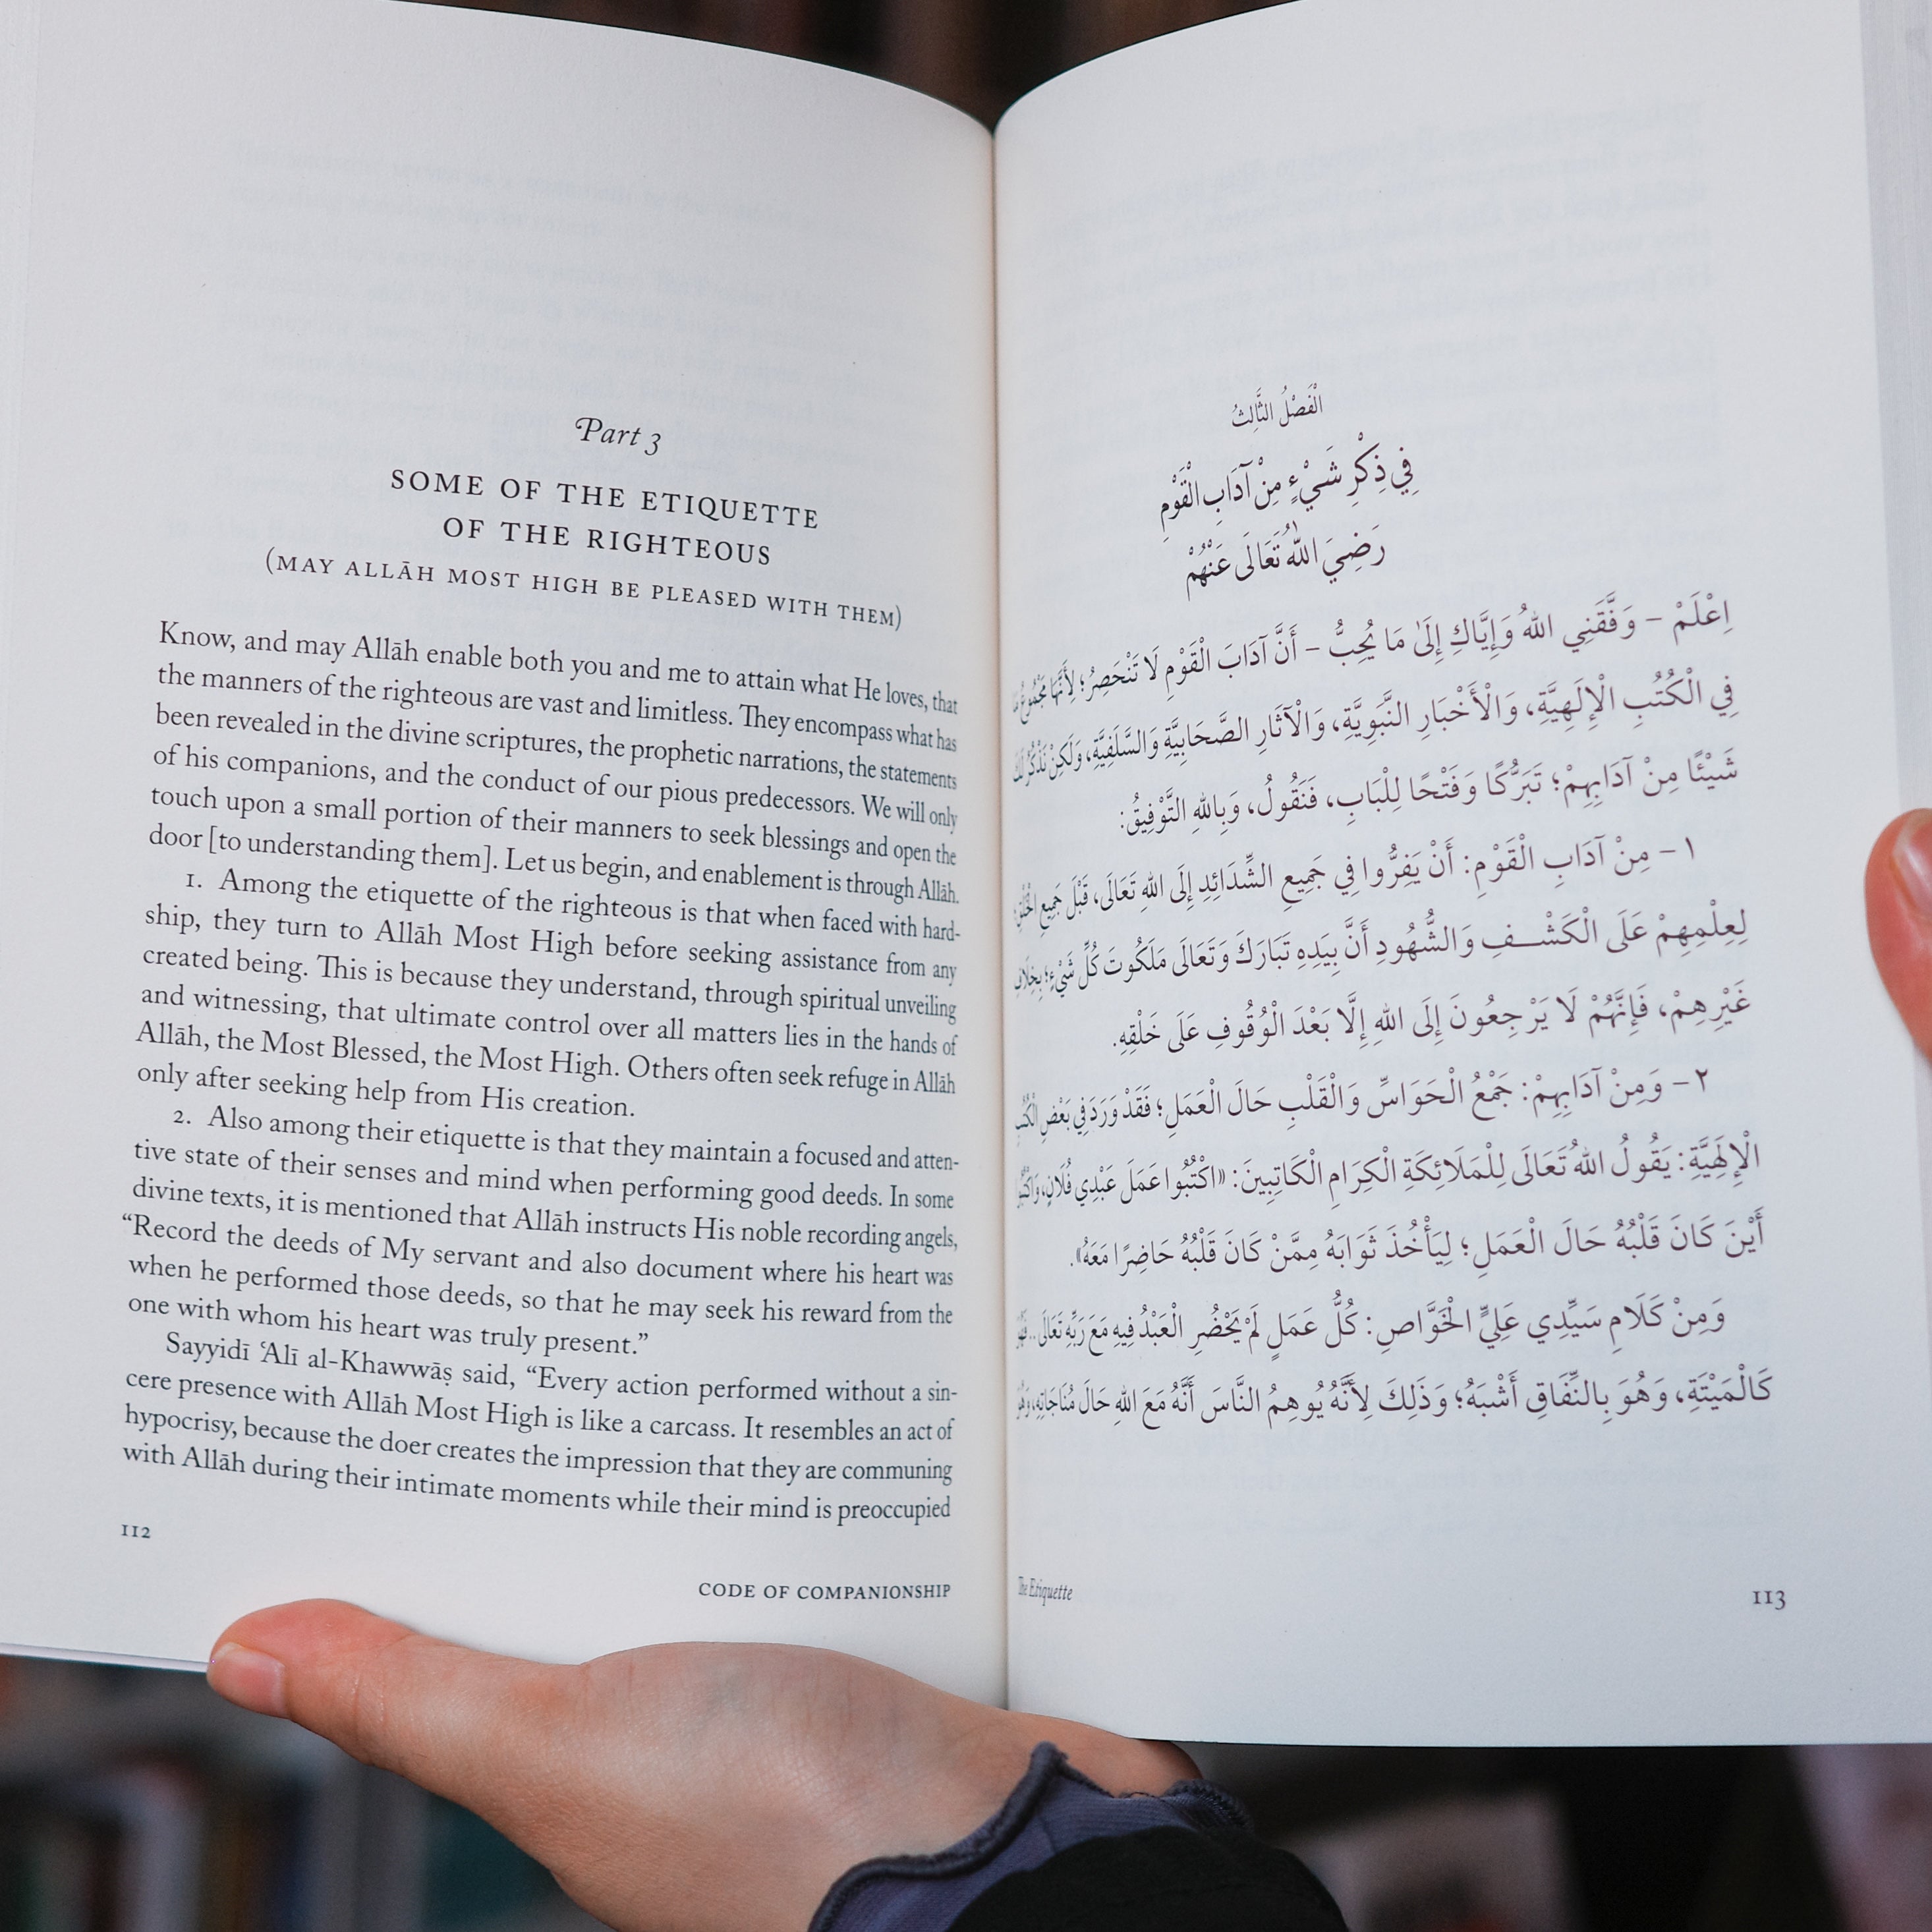 Part 3
SOME OF THE ETIQUETTE
OF THE RIGHTEOUS
(MAY ALLĀH MOST HIGH BE PLEASED WITH THEM)
Know, and may Allāh enable both you and me to attain what He loves, that
the manners of the righteous are vast and limitless. They encompass what has
been revealed in the divine scriptures, the prophetic narrations, the statements
of his companions, and the conduct of our pious predecessors. We will only
touch upon a small portion of their manners to seek blessings and open the
door [to understanding them]. Let us begin, and enablement is through Allāh.
1. Among the etiquette of the righteous is that when faced with hard-
ship, they turn to Allāh Most High before seeking assistance from any
created being. This is because they understand, through spiritual unveiling
and witnessing, that ultimate control over all matters lies in the hands of
Allāh, the Most Blessed, the Most High. Others often seek refuge in Allāh
only after seeking help from His creation.
2. Also among their etiquette is that they maintain a focused and atten-
tive state of their senses and mind when performing good deeds. In some
divine texts, it is mentioned that Allāh instructs His noble recording angels,
“Record the deeds of My servant and also document where his heart was
when he performed those deeds, so that he may seek his reward from the
one with whom his heart was truly present.”
Sayyidī ʿAlī al-Khawwāṣ said, “Every action performed without a sin-
cere presence with Allāh Most High is like a carcass. It resembles an act of
hypocrisy, because the doer creates the impression that they are communing
with Allāh during their intimate moments while their mind is preoccupied
112
CODE OF COMPANIONSHIP
الْفَصْلُ الثَّالِثُ
فِي ذِكْرِ شَيْءٍ مِنْ آدَابِ الْقَوْمِ
رَضِيَ اللهُ تَعَالَى عَنْهُمْ
اِعْلَمْ – وَفَّقَنِي اللهُ وَإِيَّاكَ إِلَىٰ مَا يُحِبُّ – أَنَّ آدَابَ الْقَوْمِ لَا تَنْحَصِرُ؛ لِأَنَّهَا مَجْمُوعُ مَا
فِي الْكُتُبِ الْإِلَهِيَّةِ، وَالْأَخْبَارِ النَّبَوِيَّةِ، وَالْآثَارِ الصَّحَابِيَّةِ وَالسَّلَفِيَّةِ، وَلَكِنْ نَذْكُرُ لَكَ
شَيْئًا مِنْ آدَابِهِمْ؛ تَبَرُّكًا وَفَتْحًا لِلْبَابِ، فَنَقُولُ، وَبِاللهِ التَّوْفِيقُ:
١ – مِنْ آدَابِ الْقَوْمِ: أَنْ يَفِرُّوا فِي جَمِيعِ الشَّدَائِدِ إِلَى اللهِ تَعَالَى، قَبْلَ جَمِيعِ الْخَلْقِ؛
لِعِلْمِهِمْ عَلَى الْكَشْفِ وَالشُّهُودِ أَنَّ بِيَدِهِ تَبَارَكَ وَتَعَالَى مَلَكُوتَ كُلِّ شَيْءٍ؛ بِخِلَافِ
غَيْرِهِمْ، فَإِنَّهُمْ لَا يَرْجِعُونَ إِلَى اللهِ إِلَّا بَعْدَ الْوُقُوفِ عَلَى خَلْقِهِ.
٢ – وَمِنْ آدَابِهِمْ: جَمْعُ الْحَوَاسِّ وَالْقَلْبِ حَالَ الْعَمَلِ؛ فَقَدْ وَرَدَ فِي بَعْضِ الْكُتُبِ
الْإِلَهِيَّةِ: يَقُولُ اللهُ تَعَالَى لِلْمَلَائِكَةِ الْكِرَامِ الْكَاتِبِينَ: «اكْتُبُوا عَمَلَ عَبْدِي فُلَانٍ، وَاكْتُبُوا
أَيْنَ كَانَ قَلْبُهُ حَالَ الْعَمَلِ؛ لِيَأْخُذَ ثَوَابَهُ مِمَّنْ كَانَ قَلْبُهُ حَاضِرًا مَعَهُ».
وَمِنْ كَلَامِ سَيِّدِي عَلِيٍّ الْخَوَّاصِ: كُلُّ عَمَلٍ لَمْ يَحْضُرِ الْعَبْدُ فِيهِ مَعَ رَبِّهِ تَعَالَى..
كَالْمَيْتَةِ، وَهُوَ بِالنِّفَاقِ أَشْبَهُ؛ وَذَلِكَ لِأَنَّهُ يُوهِمُ النَّاسَ أَنَّهُ مَعَ اللهِ حَالَ مُنَاجَاتِهِ، وَهُوَ
The Etiquette
113